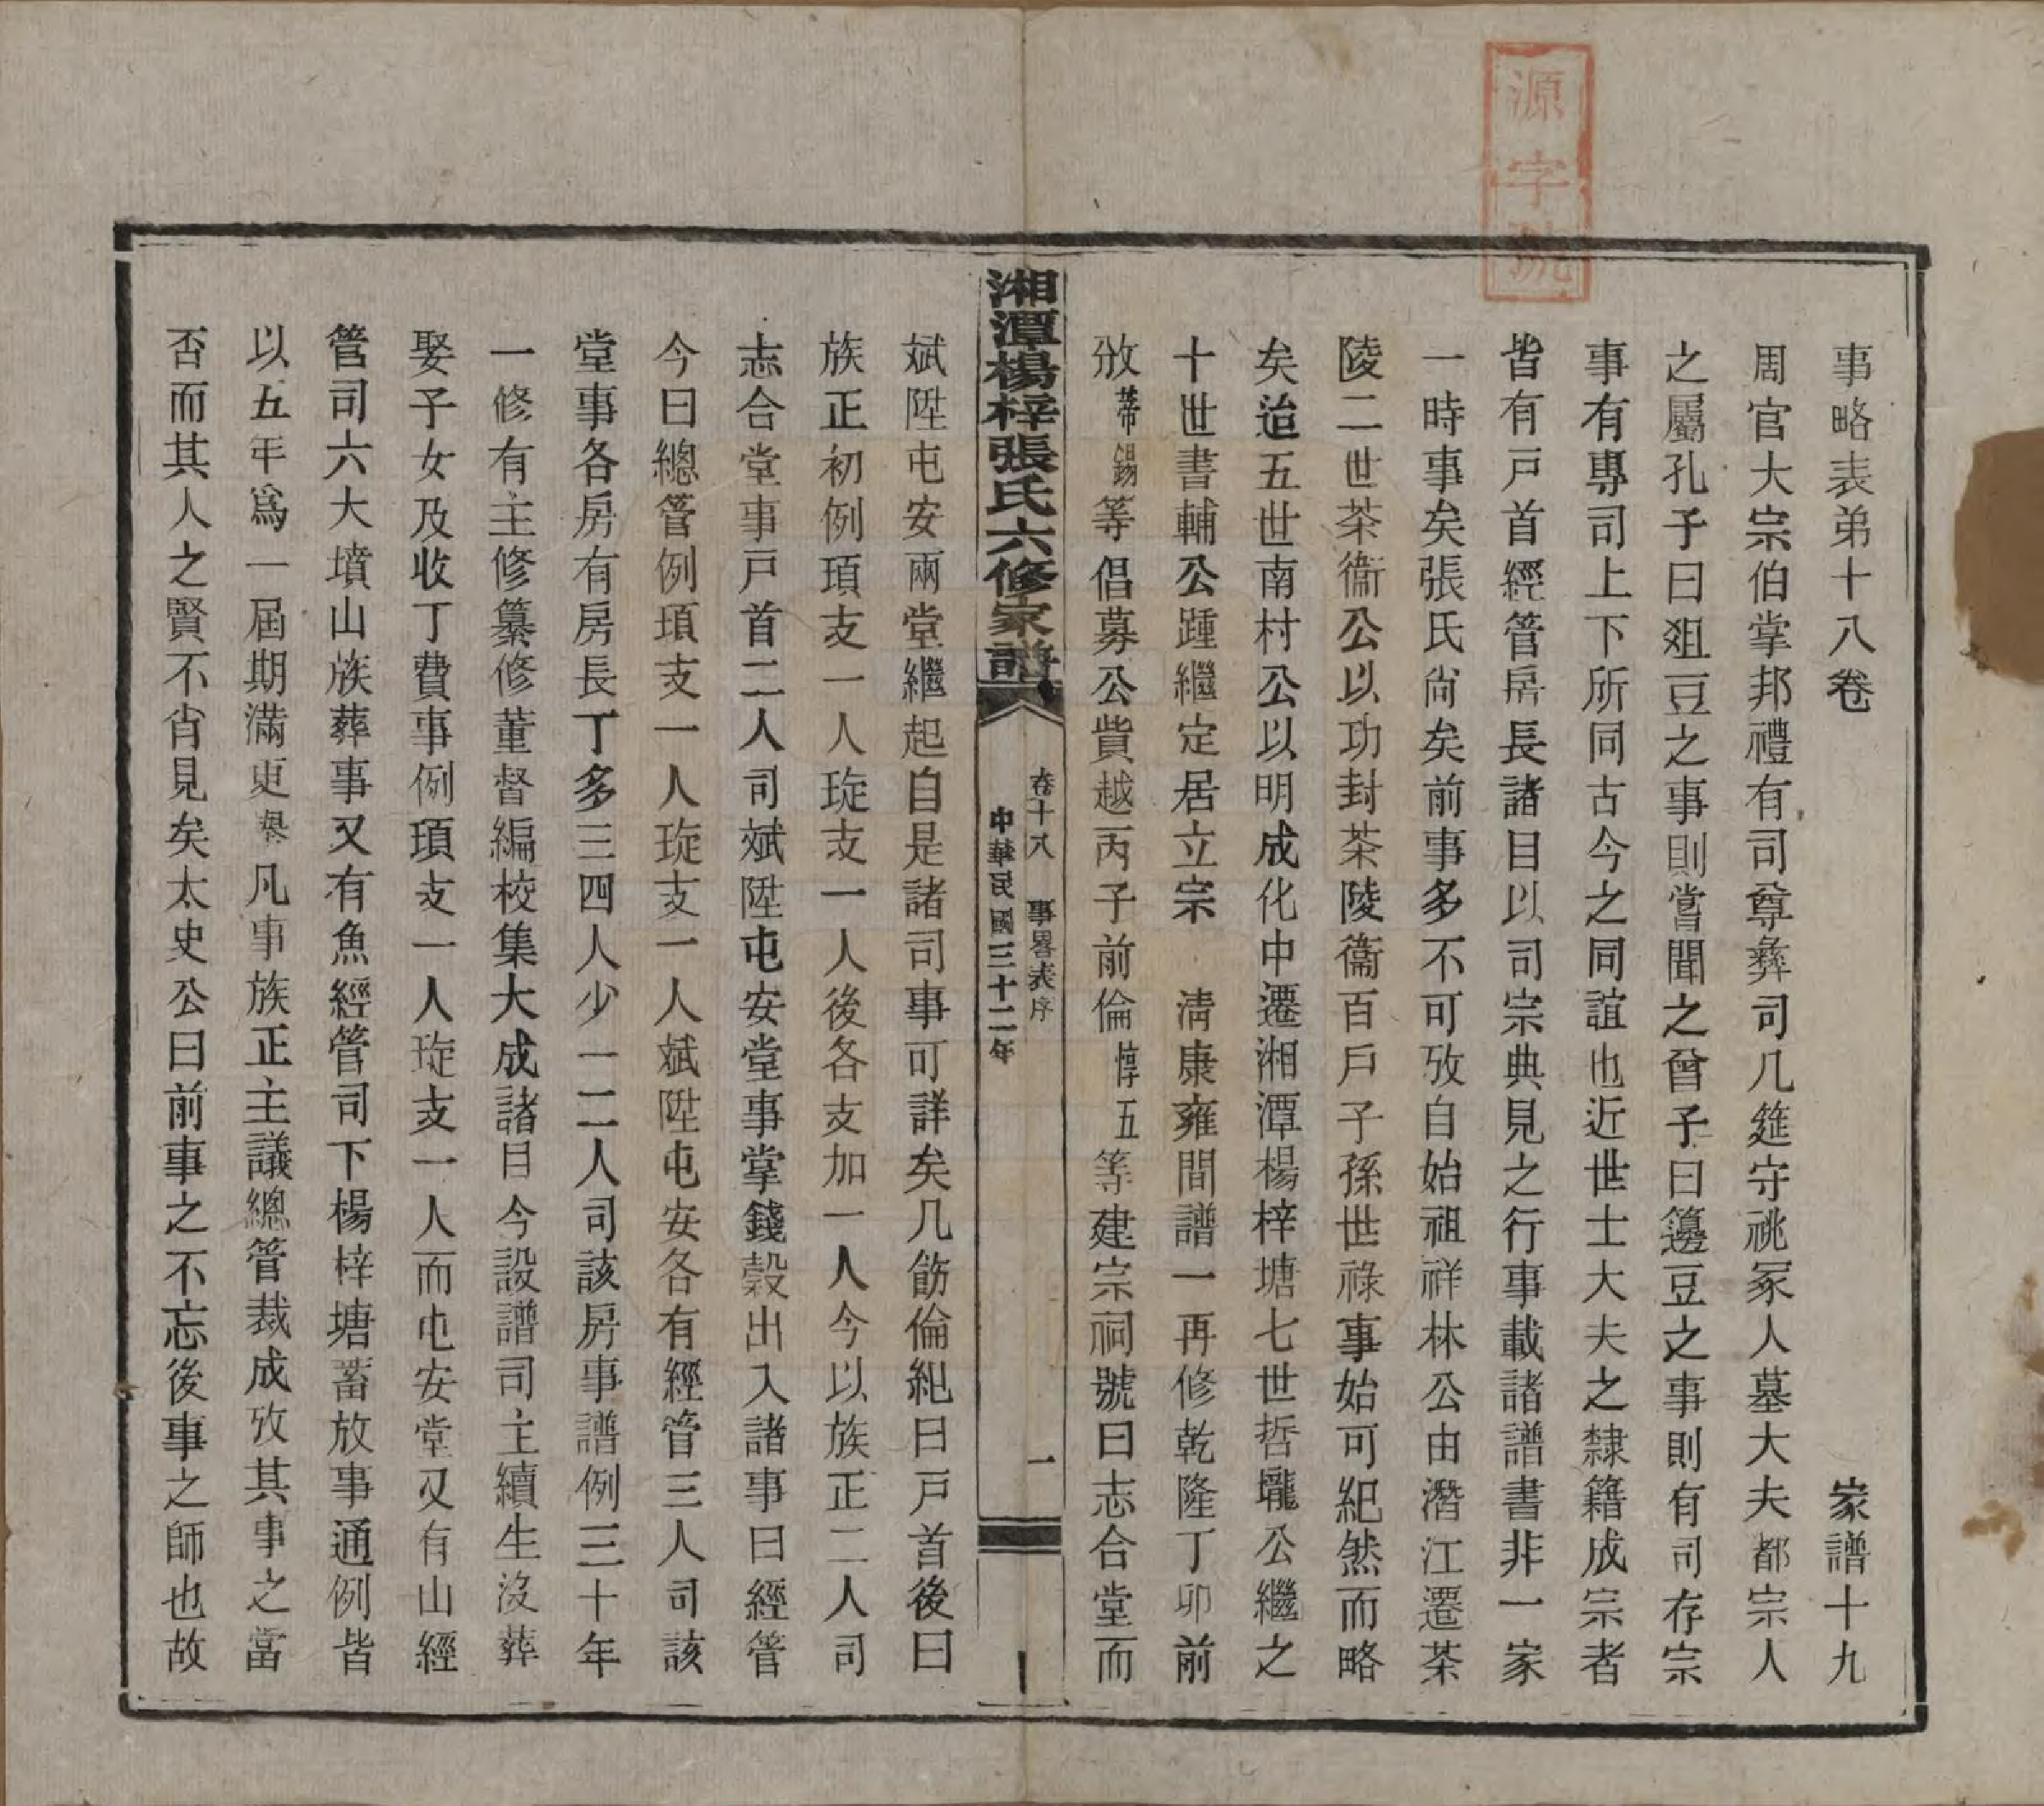 源字號
事略表弟十八卷 家譜十九
周官大宗伯掌邦禮有司尊彝司几筵守祧冢人墓大夫都宗人
之屬孔子曰俎豆之事則嘗聞之曾子曰籩豆之事則有司存宗
事有專司上下所同古今之同誼也近世士大夫之隸籍成宗者
皆有戸首經管房長諸目以司宗典見之行事載諸譜書非一家
一時事矣張氏尙矣前事多不可攷自始祖祥林公由潛江遷茶
陵二世茶衞公以功封茶陵衞百戶子孫世祿事始可紀然而略
矣迨五世南村公以明成化中遷湘潭楊梓塘七世哲壠公繼之
十世書輔公踵繼定居立宗 淸康雍間譜一再修乾隆丁卯前
攽蒂錫等倡募公貲越丙子前倫惇五等建宗祠號曰志合堂而
湘潭楊梓張氏六修家譜
卷十八 事畧表序 一
中華民國三十二年
斌陞屯安兩堂繼起自是諸司事可詳矣凡飭倫紀曰戸首後曰
族正初例項支一人琁支一人後各支加一人今以族正二人司
志合堂事戸首二人司斌陞屯安堂事掌錢穀出入諸事曰經管
今曰總管例項支一人琁支一人斌陞屯安各有經管三人司該
堂事各房有房長丁多三四人少一二人司該房事譜例三十年
一修有主修纂修董督編校集大成諸目今設譜司主續生沒葬
娶子女及收丁費事例項支一人琁支一人而屯安堂又有山經
管司六大墳山族葬事又有魚經管司下楊梓塘蓄放事通例皆
以五年爲一屆期滿更舉凡事族正主議總管裁成攷其事之當
否而其人之賢不肖見矣太史公曰前事之不忘後事之師也故